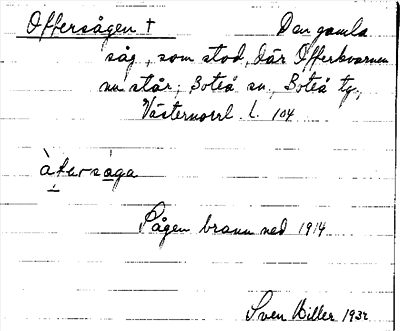 Offersågen † Den gamla
såg, som stod, där Offerkvarnen
nu står; Boteå sn, Boteå tg,
Västernorrl. l. 104
àfersaga
Sågen brann ned 1914
Sven Willer 1932